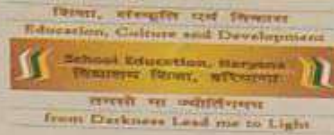 शिक्षा, संस्कृति एवं विकास
Education, Culture and Development
School Education, Haryana
विद्यालय शिक्षा, हरियाणा
तमसो मा ज्योतिर्गमय
from Darkness Lead me to Light